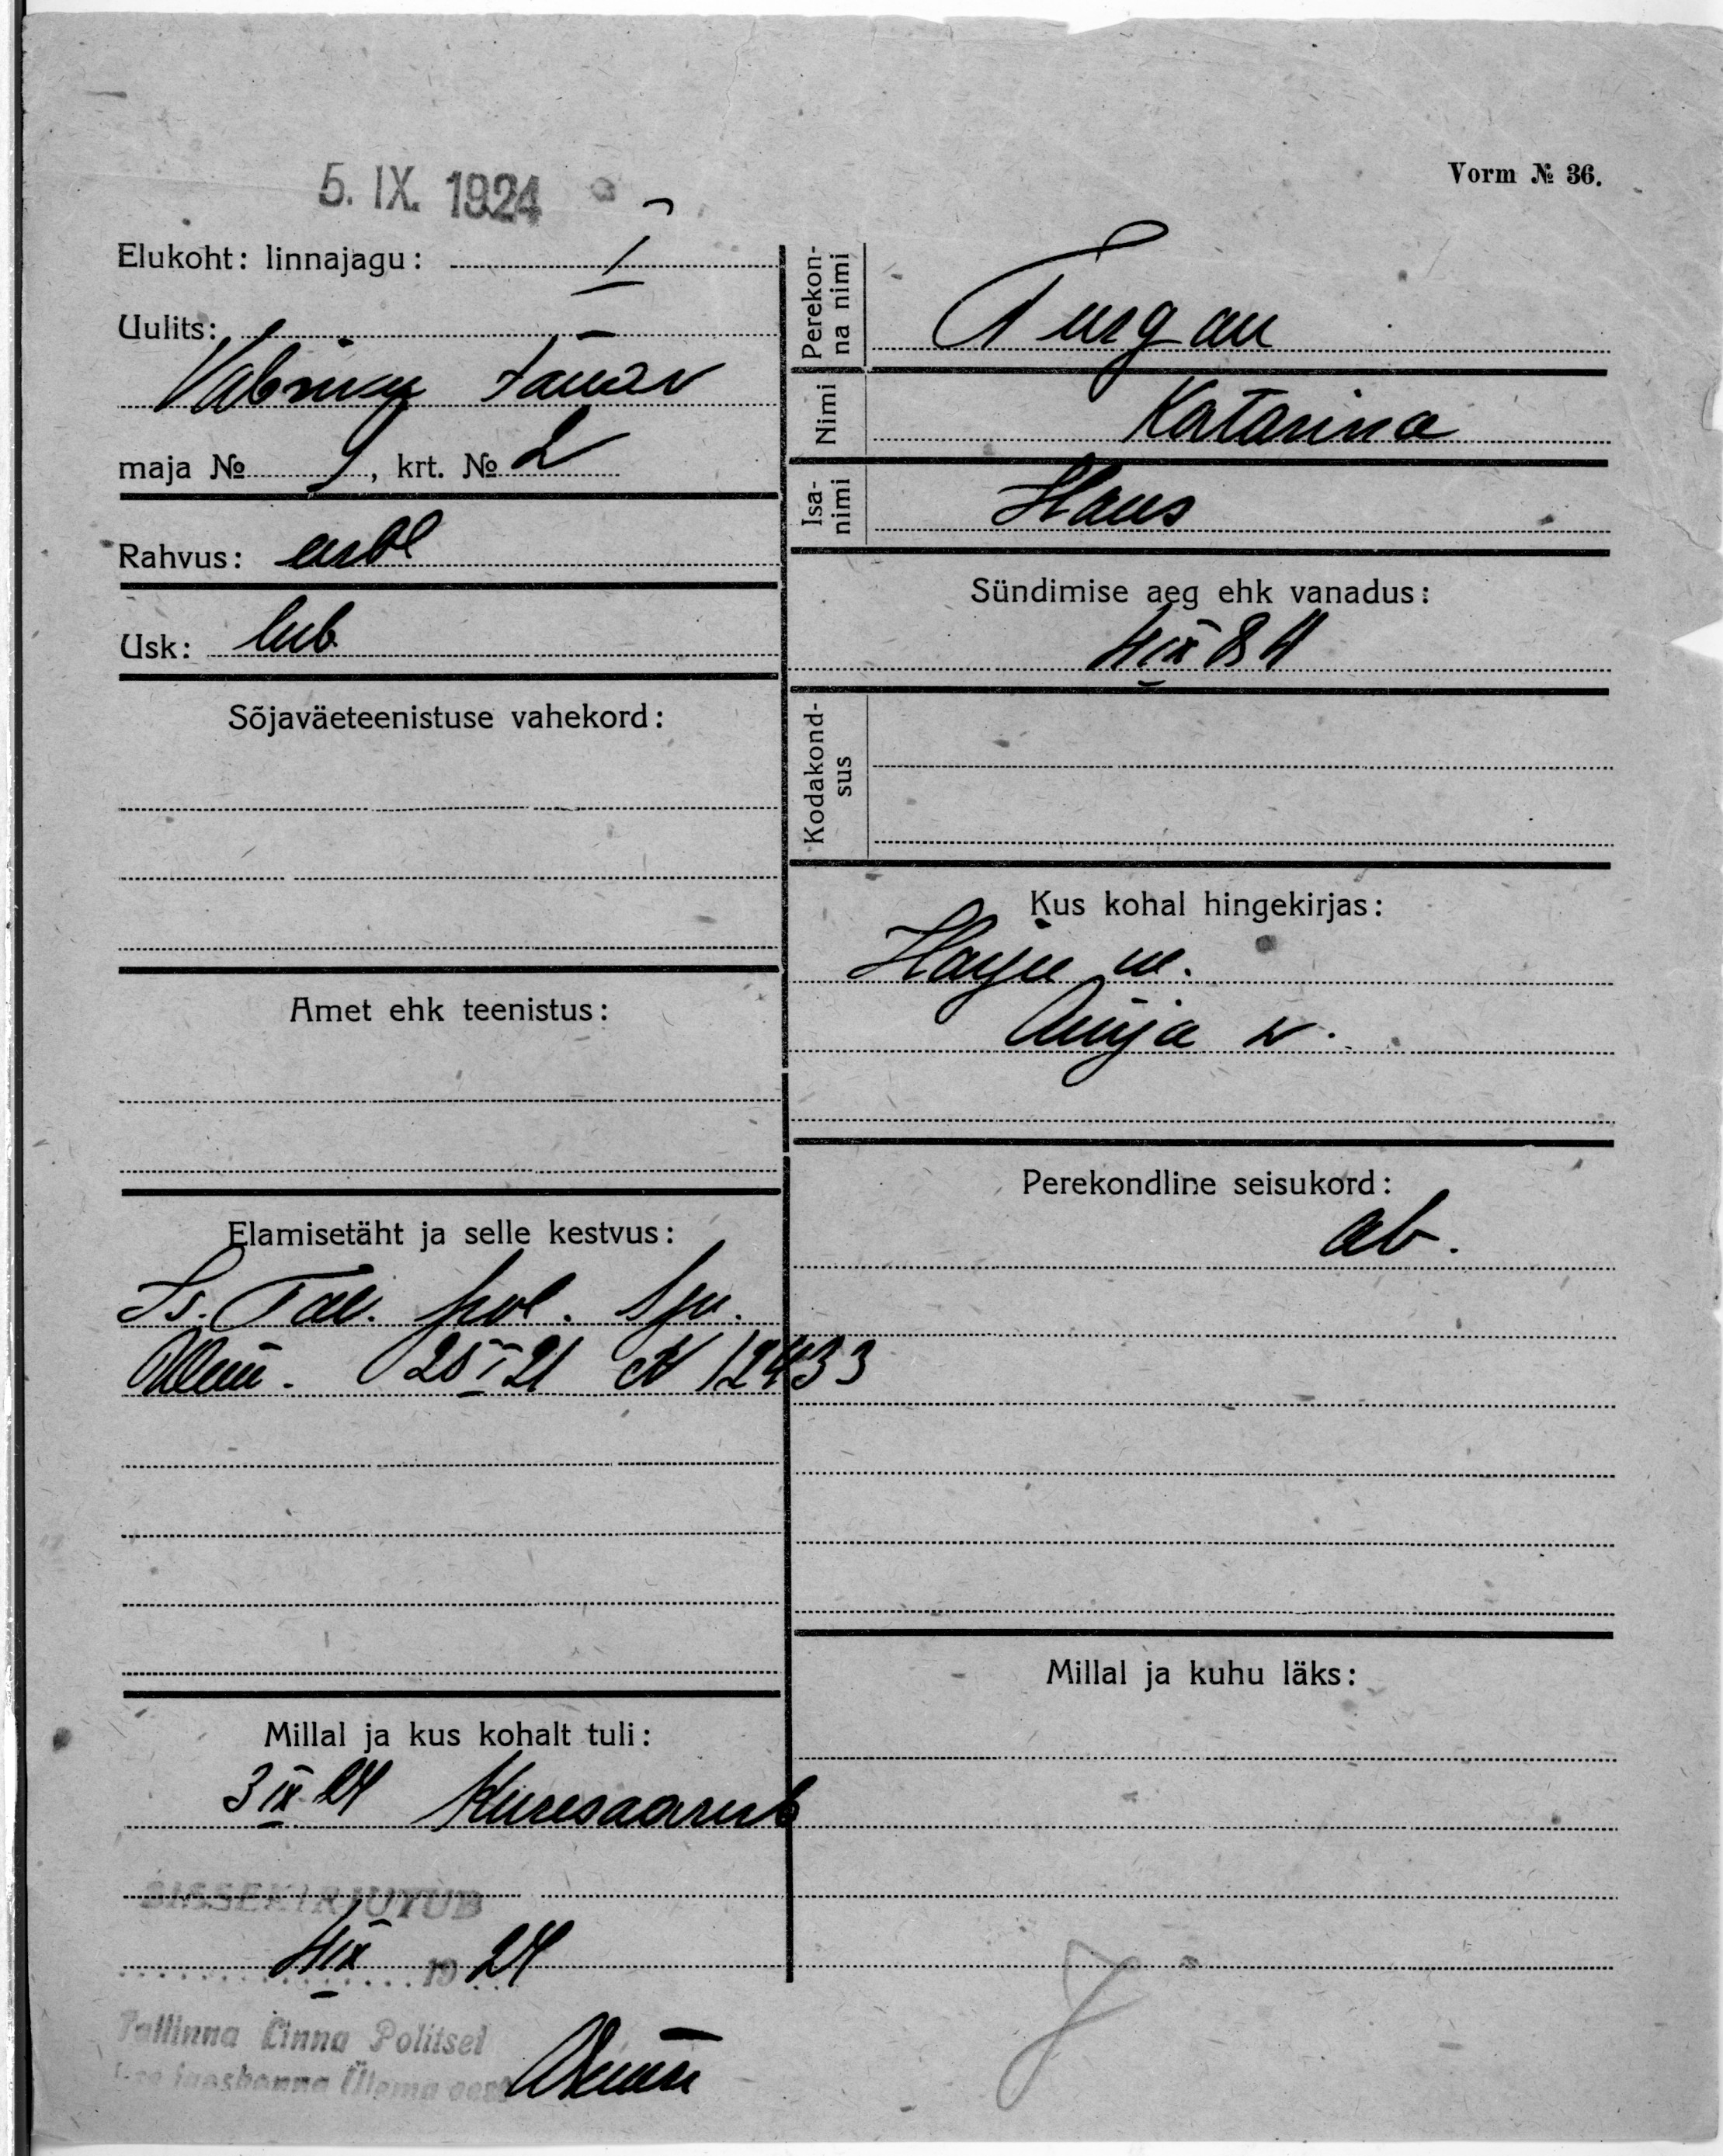 5. IX. 1924
Vorm № 36.
Elukoht: linnajagu: I
Uulits:
Vabriku tänav
maja № 9, krt. № 2
Rahvus: eestl
Usk: lut.
Sõjaväeteenistuse vahekord:
Amet ehk teenistus:
Elamisetäht ja selle kestvus:
Is. Tal. pol. I jsk.
Ülem. 25 I 21 № 12433
Millal ja kus kohalt tuli:
3 IX 24 Kuresaarest
SISSEKIRJUTUD
4 IX 1924
Tallinna Linna Politsei
jaoskonna Ülema eest
Perekonna nimi
Turgan
Nimi
Katarina
Isanimi
Hans
Sündimise aeg ehk vanadus:
4 IX 84
Kodakondsus
Kus kohal hingekirjas:
Harju m.
Anija v.
Perekondline seisukord:
ab.
Millal ja kuhu läks: